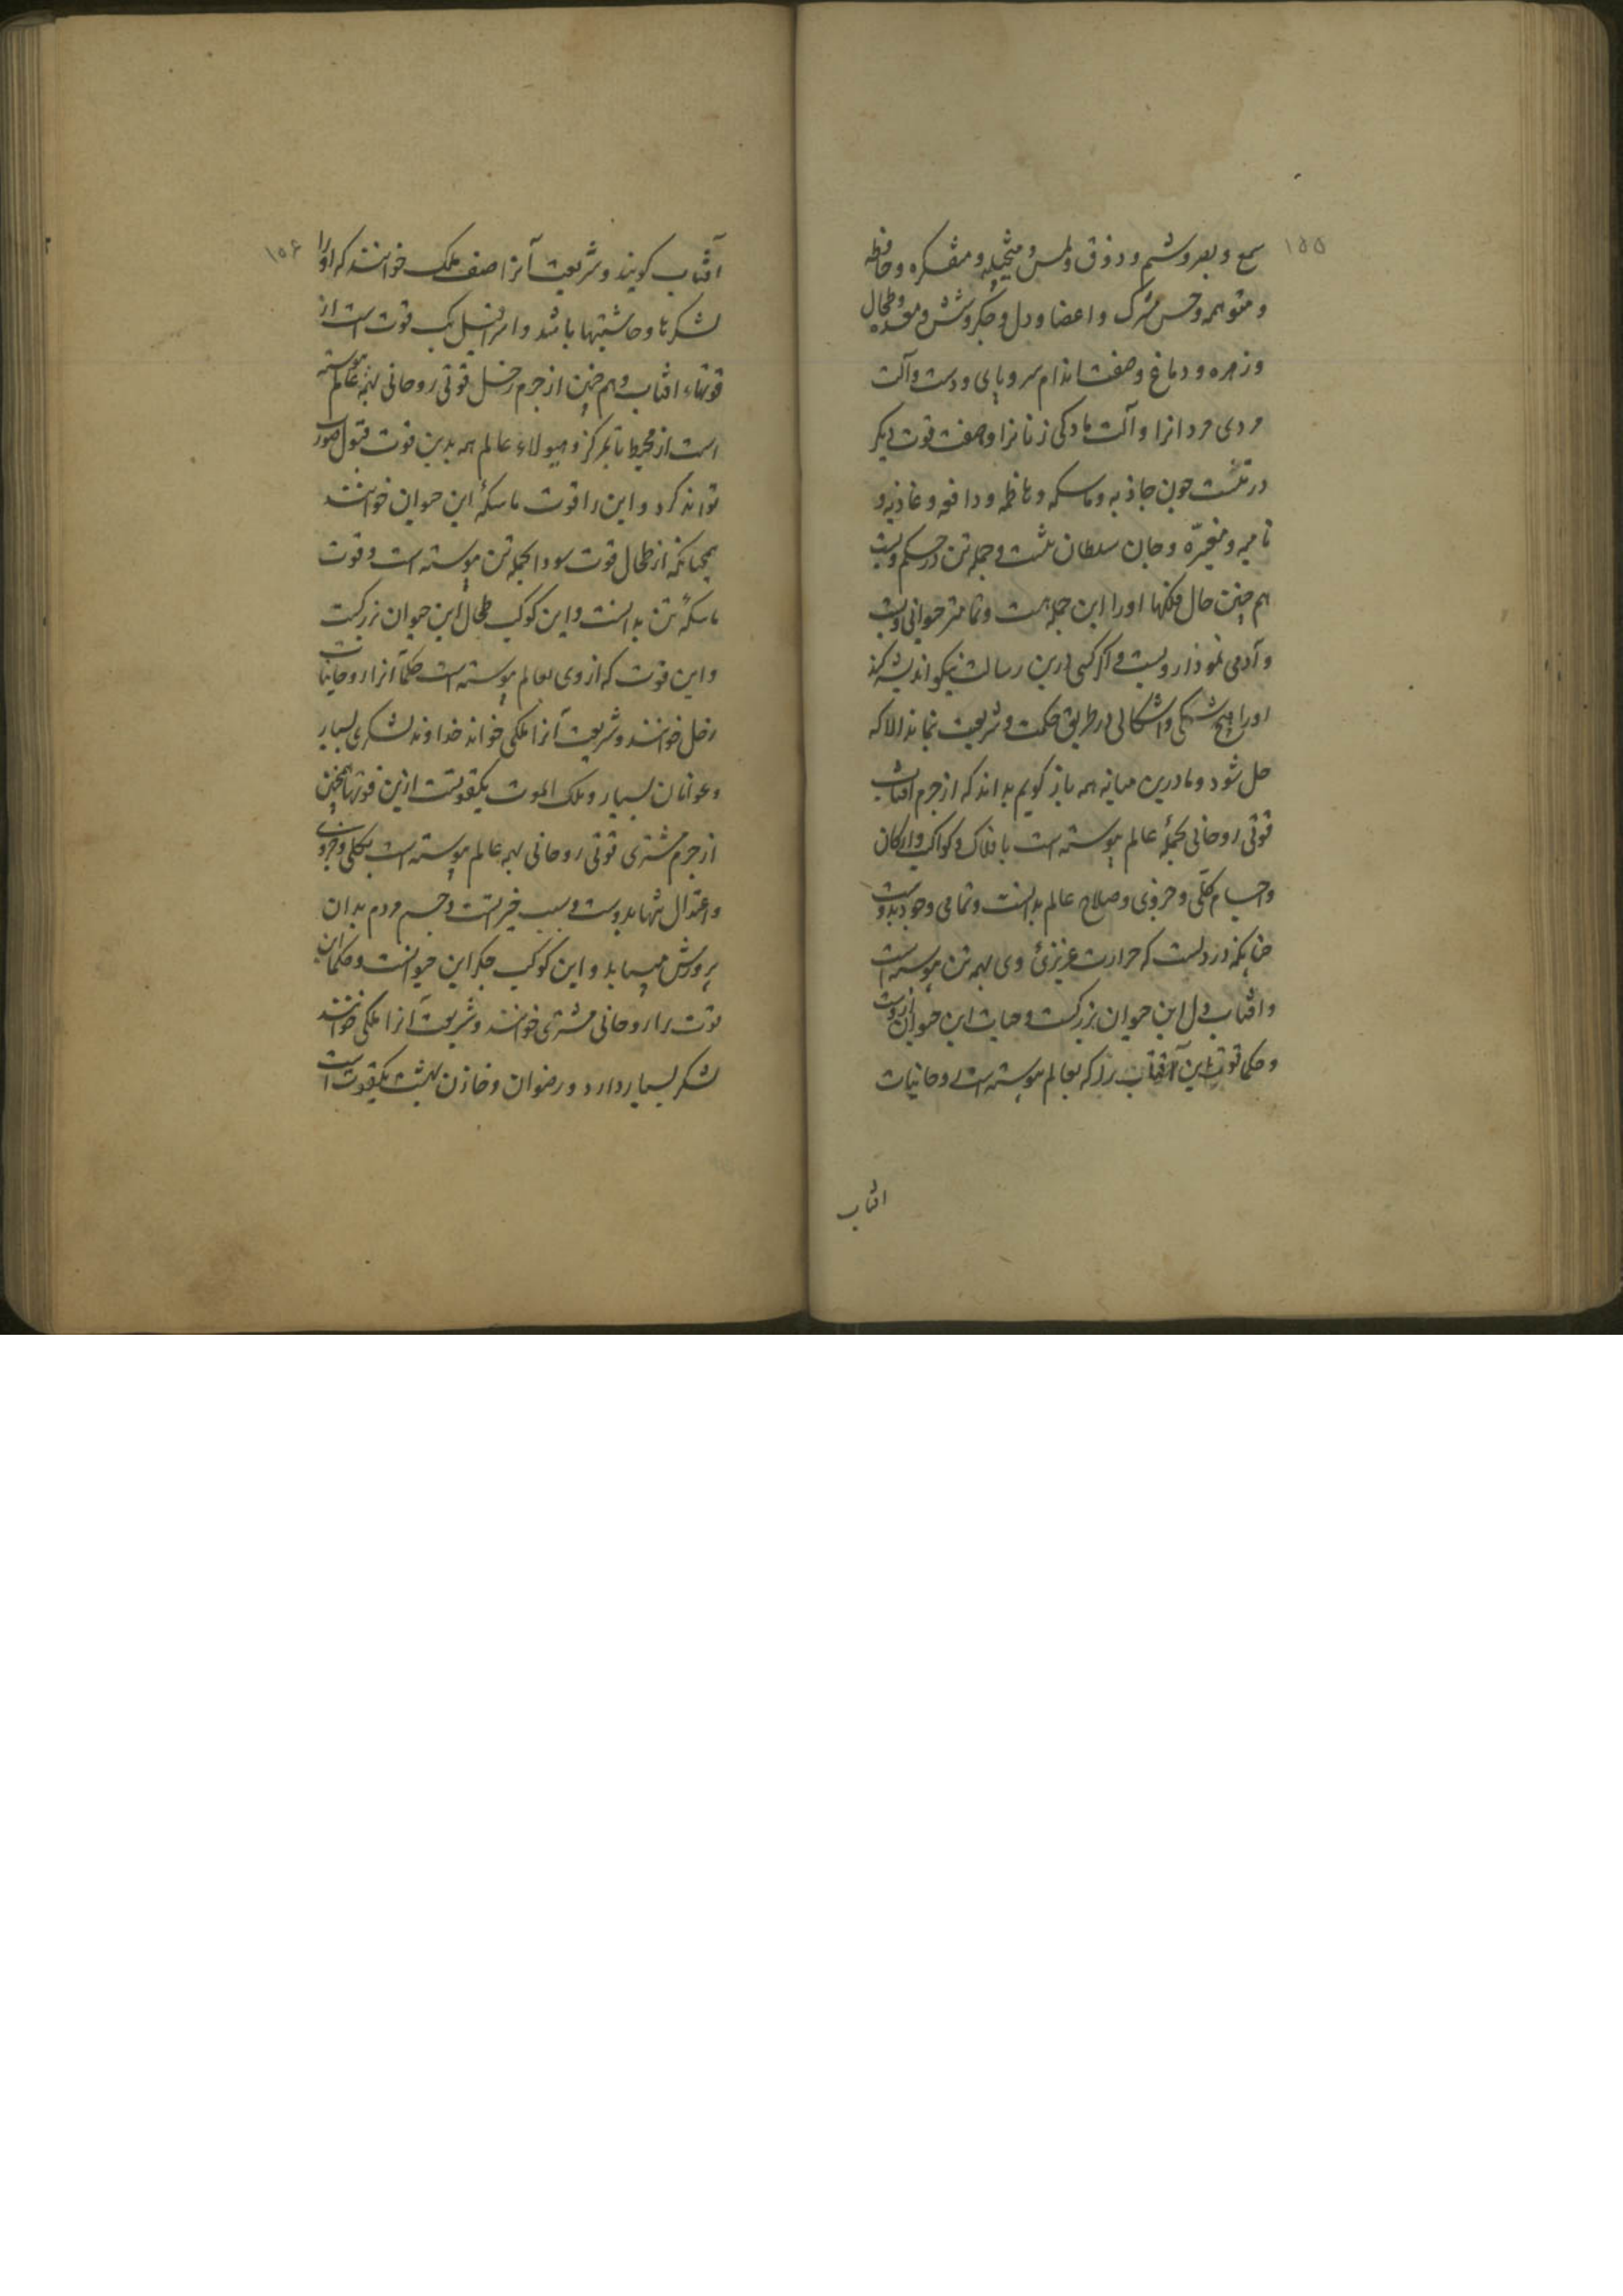 ۱۵۵
سمع و بصر و شم و ذوق و لمس و متخیله و متفکره و حافظه
و متوهمه و حس مشرک و اعضا و دل و جکر و شش و معده و طحال
و زهره و دماغ و هفت اندام سر و پای و دست و آلت
مردی مردانرا و آلت مادکی زنانرا و هفت قوت دیکر
در تنست جون جاذبه و ماسکه و هاظمه و دافعه و غاذیه و
نامیه و مغیّره و جان سلطان تنست و جمله تن در حکم ویست
هم جنین حال فلکها او را این جمله هست و تمامتر حیوانی ویست
و آدمی نموذار ویست و اکر کسی درین رسالت نیکو اندیشه کند
او را هیچ شکی و اشکالی در طریق حکمت و شریعت نماند الا که
حل شود و ما درین میانه همه باز کویم بداند که از جرم افتاب
قوتی روحانی بجملۀ عالم پیوسته است بافلاک و کواکب و ارکان
و اجسام کلّی و جزوی و صلاح عالم بدانست و تمامی وجود بدوست
جنانکه در دلست که حرارت عزیزئ وی بهمه تن پیوسته است
و افتاب دل این حیوان بزرکست و حیات این حیوان ازوست
و حکما قوت این آفتاب را که بعالم پیوسته است روحانیات
افتاب
۱۵۶
آفتاب کویند و شریعت آنرا صف ملک خوانند که او را
لشکرها و حاشیتها باشد و اسرافیل یک قوت است از
قوتهاء افتاب و هم جنین از جرم زحل قوتی روحانی بهمه عالم پیوسته
است از محیط تا بمرکز و هیولاء عالم همه بدین قوت قبول صور
تواند کرد و این را قوت ماسکۀ این حیوان خوانند
همجنانکه از طحال قوت سودا بجمله تن پیوسته است و قوت
ماسکۀ تن بدانست و این کوکب طحال این حیوان بزرکست
و این قوت که از وی بعالم پیوسته است حکما آنرا روحانیات
زحل خوانند و شریعت آنرا ملکی خواند خداوند لشکری بسیار
و عوانان بسیار و ملک الموت یکقوتست ازین قوتها همجنین
از جرم مشتری قوتی روحانی بهمه عالم پیوسته است بکلی و جزوی
و اعتدال تنها بدوست و سبب خیراتست و جسم مردم بدان
پرورش مییابد و این کوکب جکر این حیوانست و حکما این
قوت را روحانی مشتری خوانند و شریعت آنرا ملکی خوانند
لشکر بسیار دارد و رضوان و خازن بهشت یکقوت است